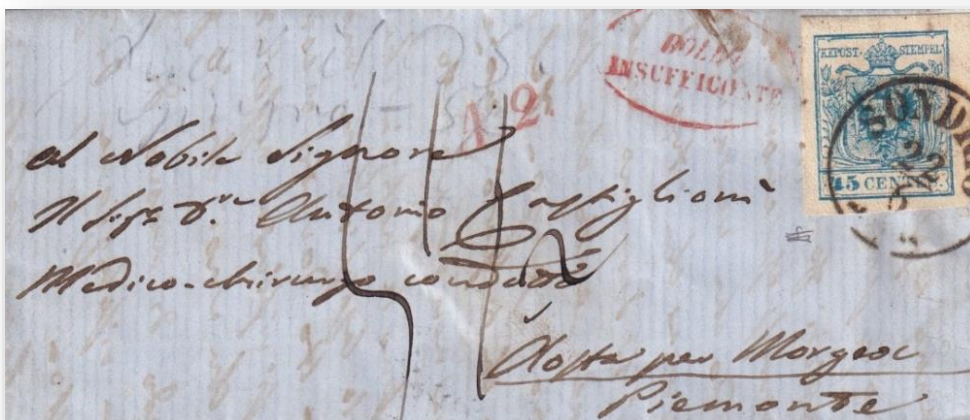 BOLLO
INSUFFICENTE
KKPOST-STEMPEL
45 CENTES.
SONDRIO
22
5
A.2.
al Nobile Signore
Il Sigr Dr. Antonio Castiglioni
Medico-chirurgo condotto
Aosta per Morgex
Piemonte